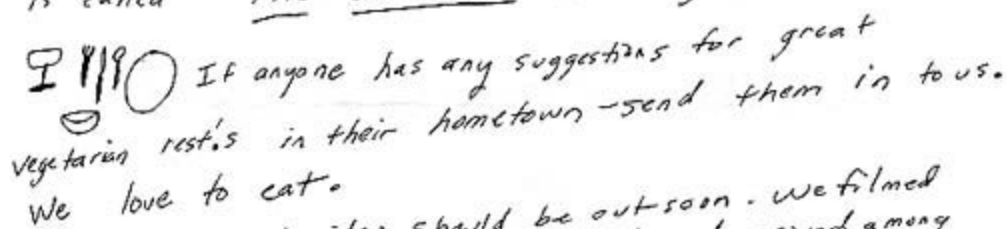 is called
If anyone has any suggestions for great
vegetarian rest.'s in their hometown - send them in to us.
We love to eat.
should be out soon. We filmed
among